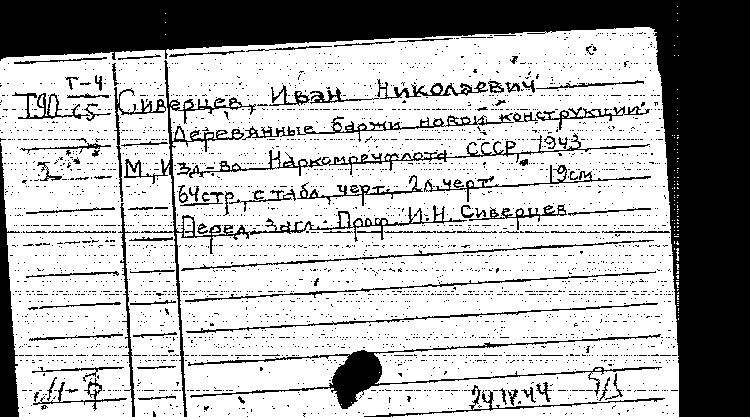 Т-4
Т90 65 Сиверцев, Иван Николаевич
Деревянные баржи новой конструкции.
2 М., Изд-во Наркомречфлота СССР, 1943.
64стр., с табл., черт., 2л.черт. 19см
Перед загл.: Проф. И.Н. Сиверцев
24 IV 44